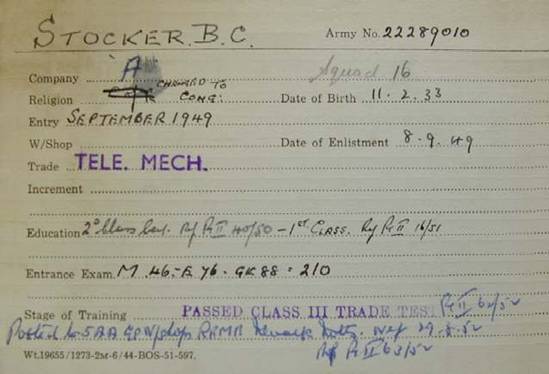 STOCKER. B.C. Army No. 22289010
Company A Squad 16
Religion CHANGED TO CONG: Date of Birth 11.2.33
Entry SEPTEMBER 1949
W/Shop Date of Enlistment 8.9.49
Trade TELE. MECH.
Increment
Education 2d Class Cert. Pt II 40/50 – 1st CLASS. Pt II 16/51
Entrance Exam. M. 46. E 76. GK 88 = 210
Stage of Training PASSED CLASS III TRADE TEST Pt II 62/52
Posted to 5 AA Newark Notts. Wef 29.8.52
Pt II 63/52
Wt.19655/1273-2M-6/44-BOS-51-597.